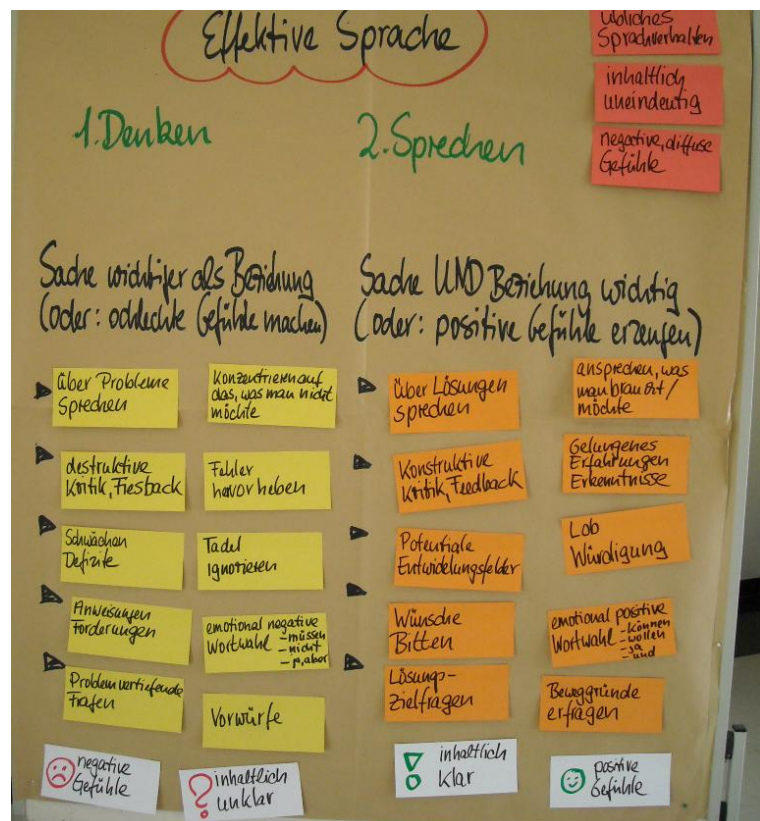 Effektive Sprache
übliches
Sprachverhalten
inhaltlich
uneindeutig
negative, diffuse
Gefühle
1. Denken
2. Sprechen
Sache wichtiger als Beziehung
(oder: schlechte Gefühle machen)
Sache UND Beziehung wichtig
(oder: positive Gefühle erzeugen)
über Probleme
sprechen
Konzentrieren auf
das, was man nicht
möchte
destruktive
Kritik, Fiesback
Fehler
hervorheben
Schwächen
Defizite
Tadel
ignorieren
Anweisungen
Forderungen
emotional negative
Wortwahl - müssen
- nicht
- ja, aber
Problemvertiefende
Fragen
Vorwürfe
negative
Gefühle
? inhaltlich
unklar
über Lösungen
sprechen
ansprechen, was
man braucht /
möchte
Konstruktive
Kritik, Feedback
Gelungenes
Erfahrungen
Erkenntnisse
Potentiale
Entwicklungsfelder
Lob
Würdigung
Wünsche
Bitten
emotional positive
Wortwahl - können
- wollen
- ja
- und
Lösungs-
Zielfragen
Beweggründe
erfragen
! inhaltlich
klar
positive
Gefühle